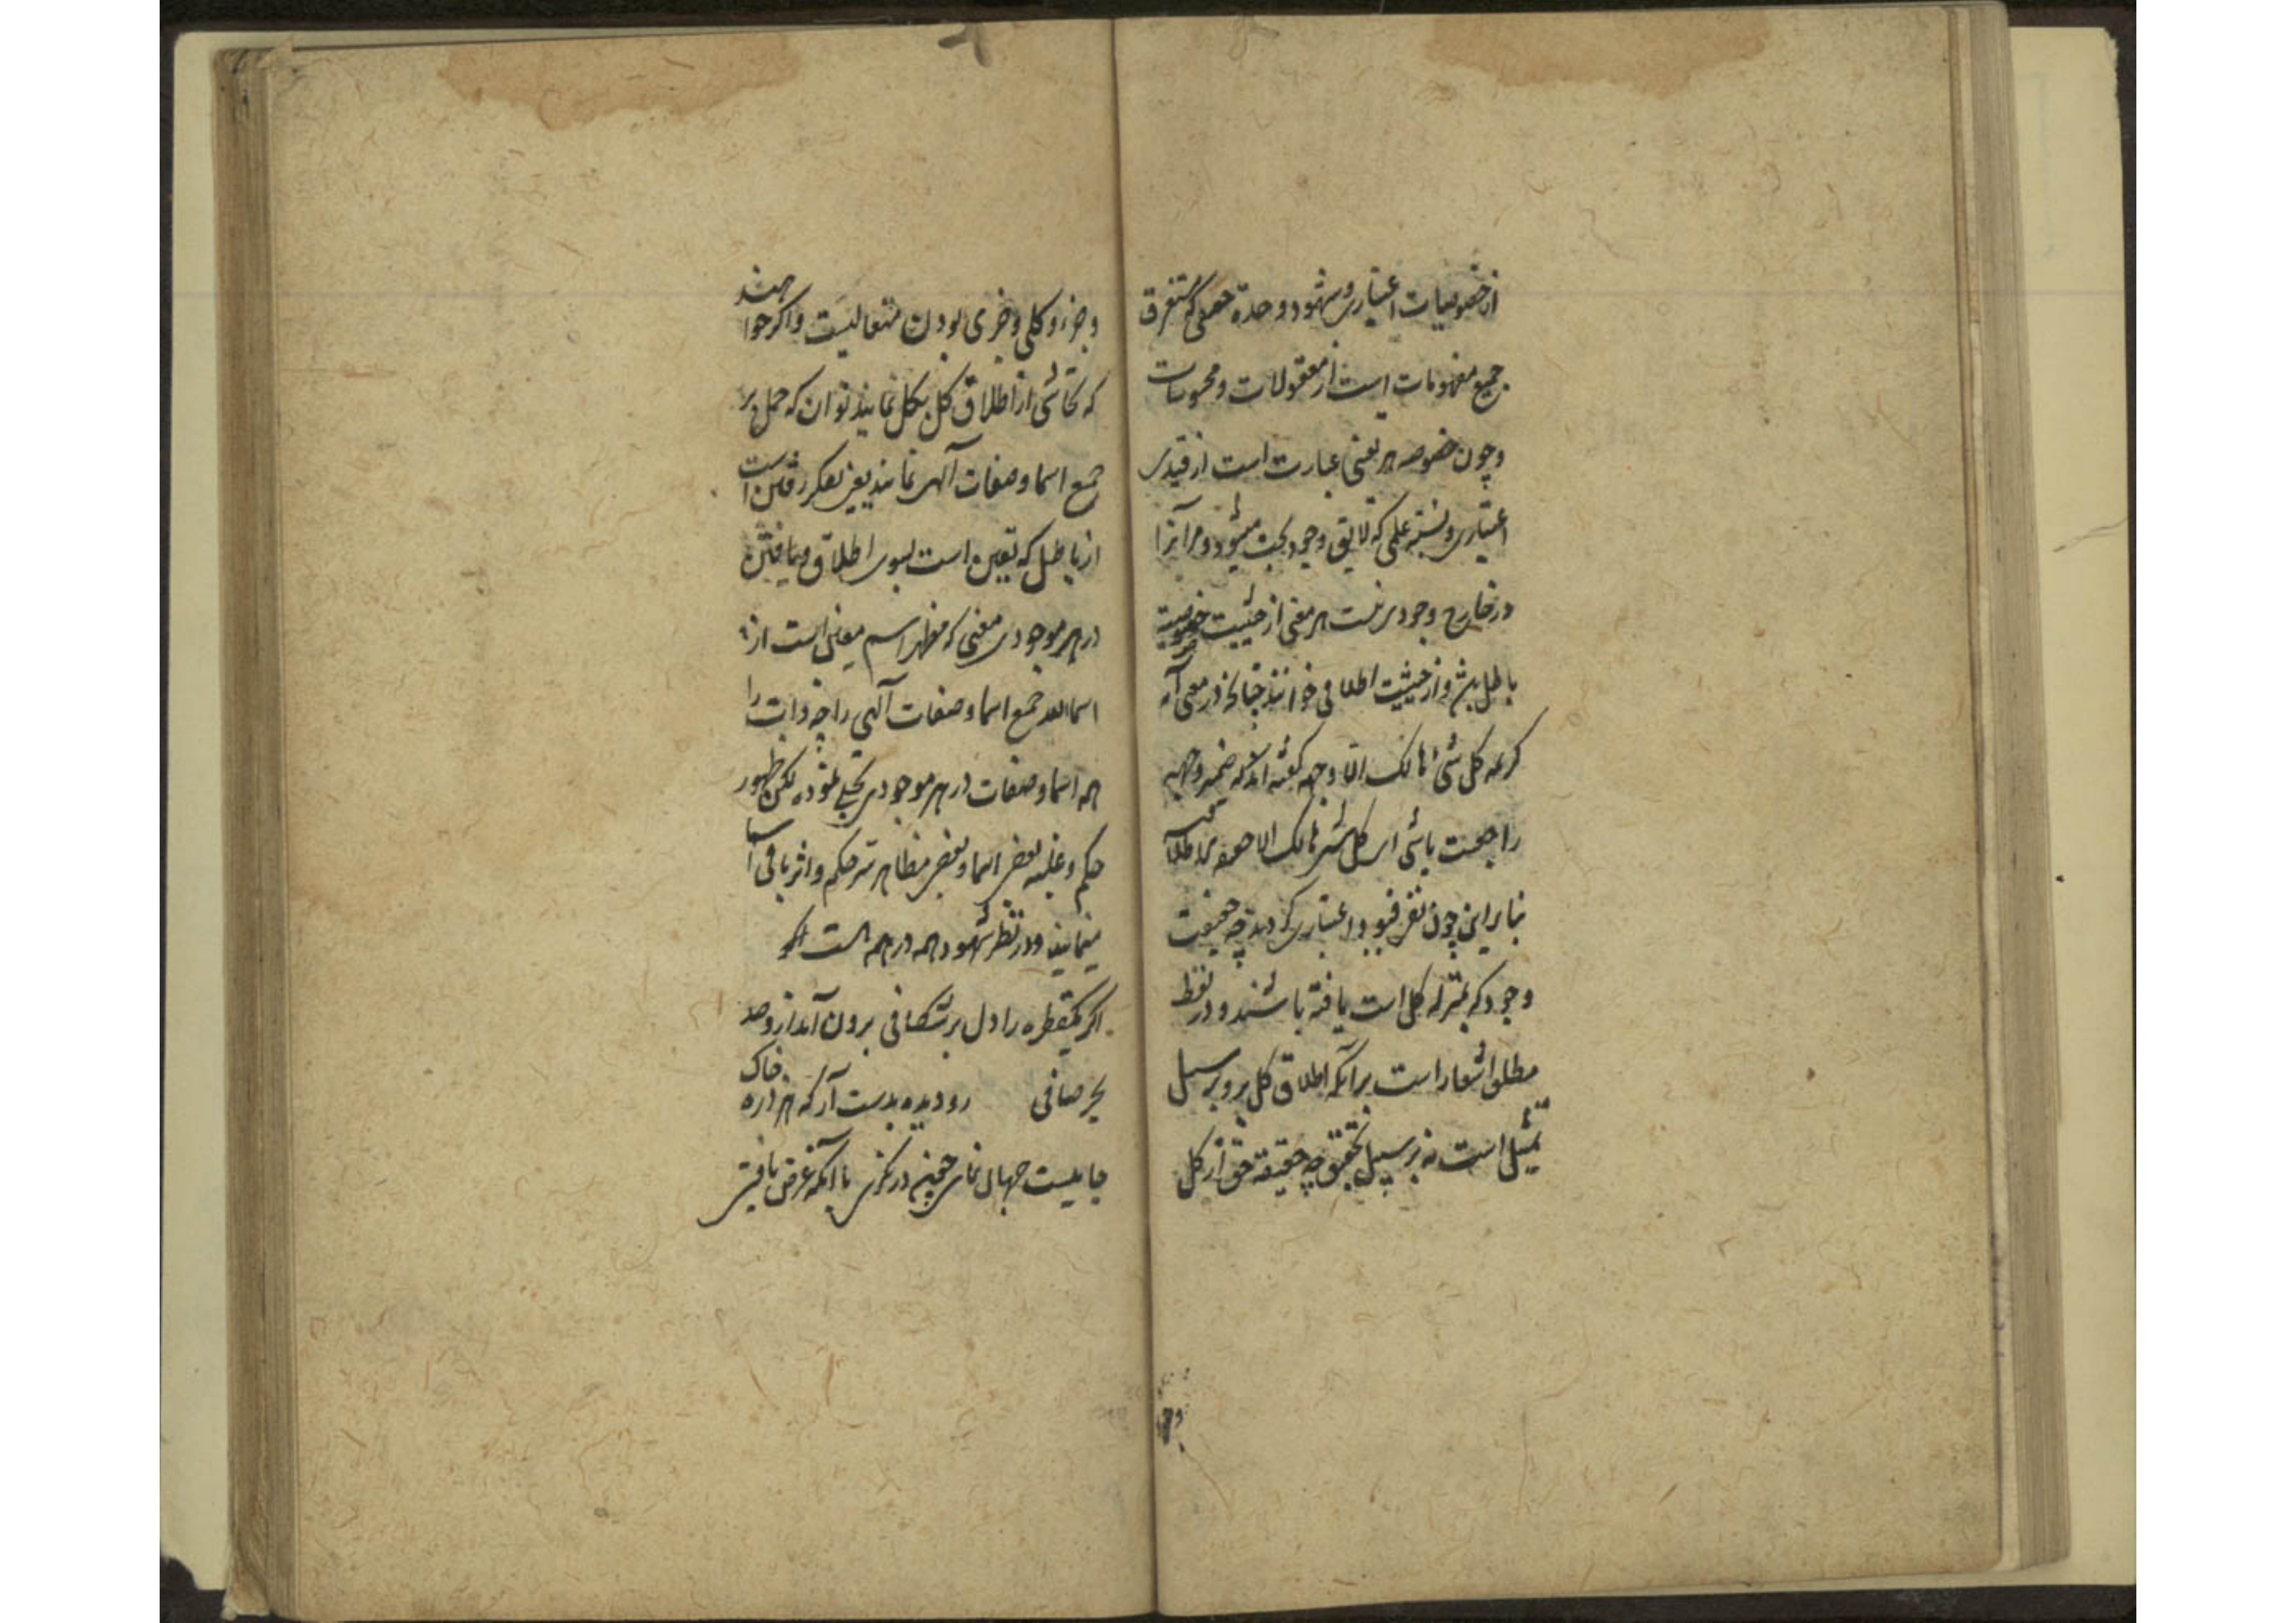 از خصوصیات اعتباری و شهود وحدة حقیقی که مستغرق
جمیع مفهومات است از معقولات و محسوسات
و چون خصوصیه هر تعینی عبارت است از قیدی
اعتباری و نسبته علمی که لایق وجود بحت میشود و مر آنرا
در خارج وجودی نیست هر معنی از حیثیت خصوصیت
باطل بینند و از حیثیت اطلاقی خوانند چنانچه در معنی آیه
کریمه کل شئ هالک الا وجهه گفته اند که ضمیر وجهه
راجعست باشئ ای کل شئ هالک الا
بنابراین چون نظر قیود اعتباری کردید چه حقیقت
وجود که بمنزله کل است یافته باشند و در لفظ
مطلق اشعار است برآنکه اطلاق کل برو بر سبیل
تمثیل است نه بر سبیل تحقیق چه حقیقة حق از کل
وجزء
و جزء و کلی و جزی بودن متعالیست و اگر خواهند
که تحاشی از اطلاق کل بکل نمایند توان که حمل بر
جمیع اسما و صفات آلهی نمایند یعنی تفکر رفتن است
از باطل که تعین است بسوی اطلاق و یافتن
در هر موجودی معینی که مظهر اسم معینی است از
اسما الله جمیع اسما و صفات آلهی را چه ذات را
همه اسما و صفات در هر موجودی تجلی نموده لکن ظهور
حکم و غلبه بعضی اسما و بعضی مظاهر ستر حکم و اثر باقی اسما
مینماید و در نظر شهود همه در همه است
اگر یکقطره را دل برشکافی برون آید ازو صد
بحر صافی رو دیده بدست آر که هر ذره خاک
جامیست جهان نمای چون در نگری با آنکه غرض یافتن